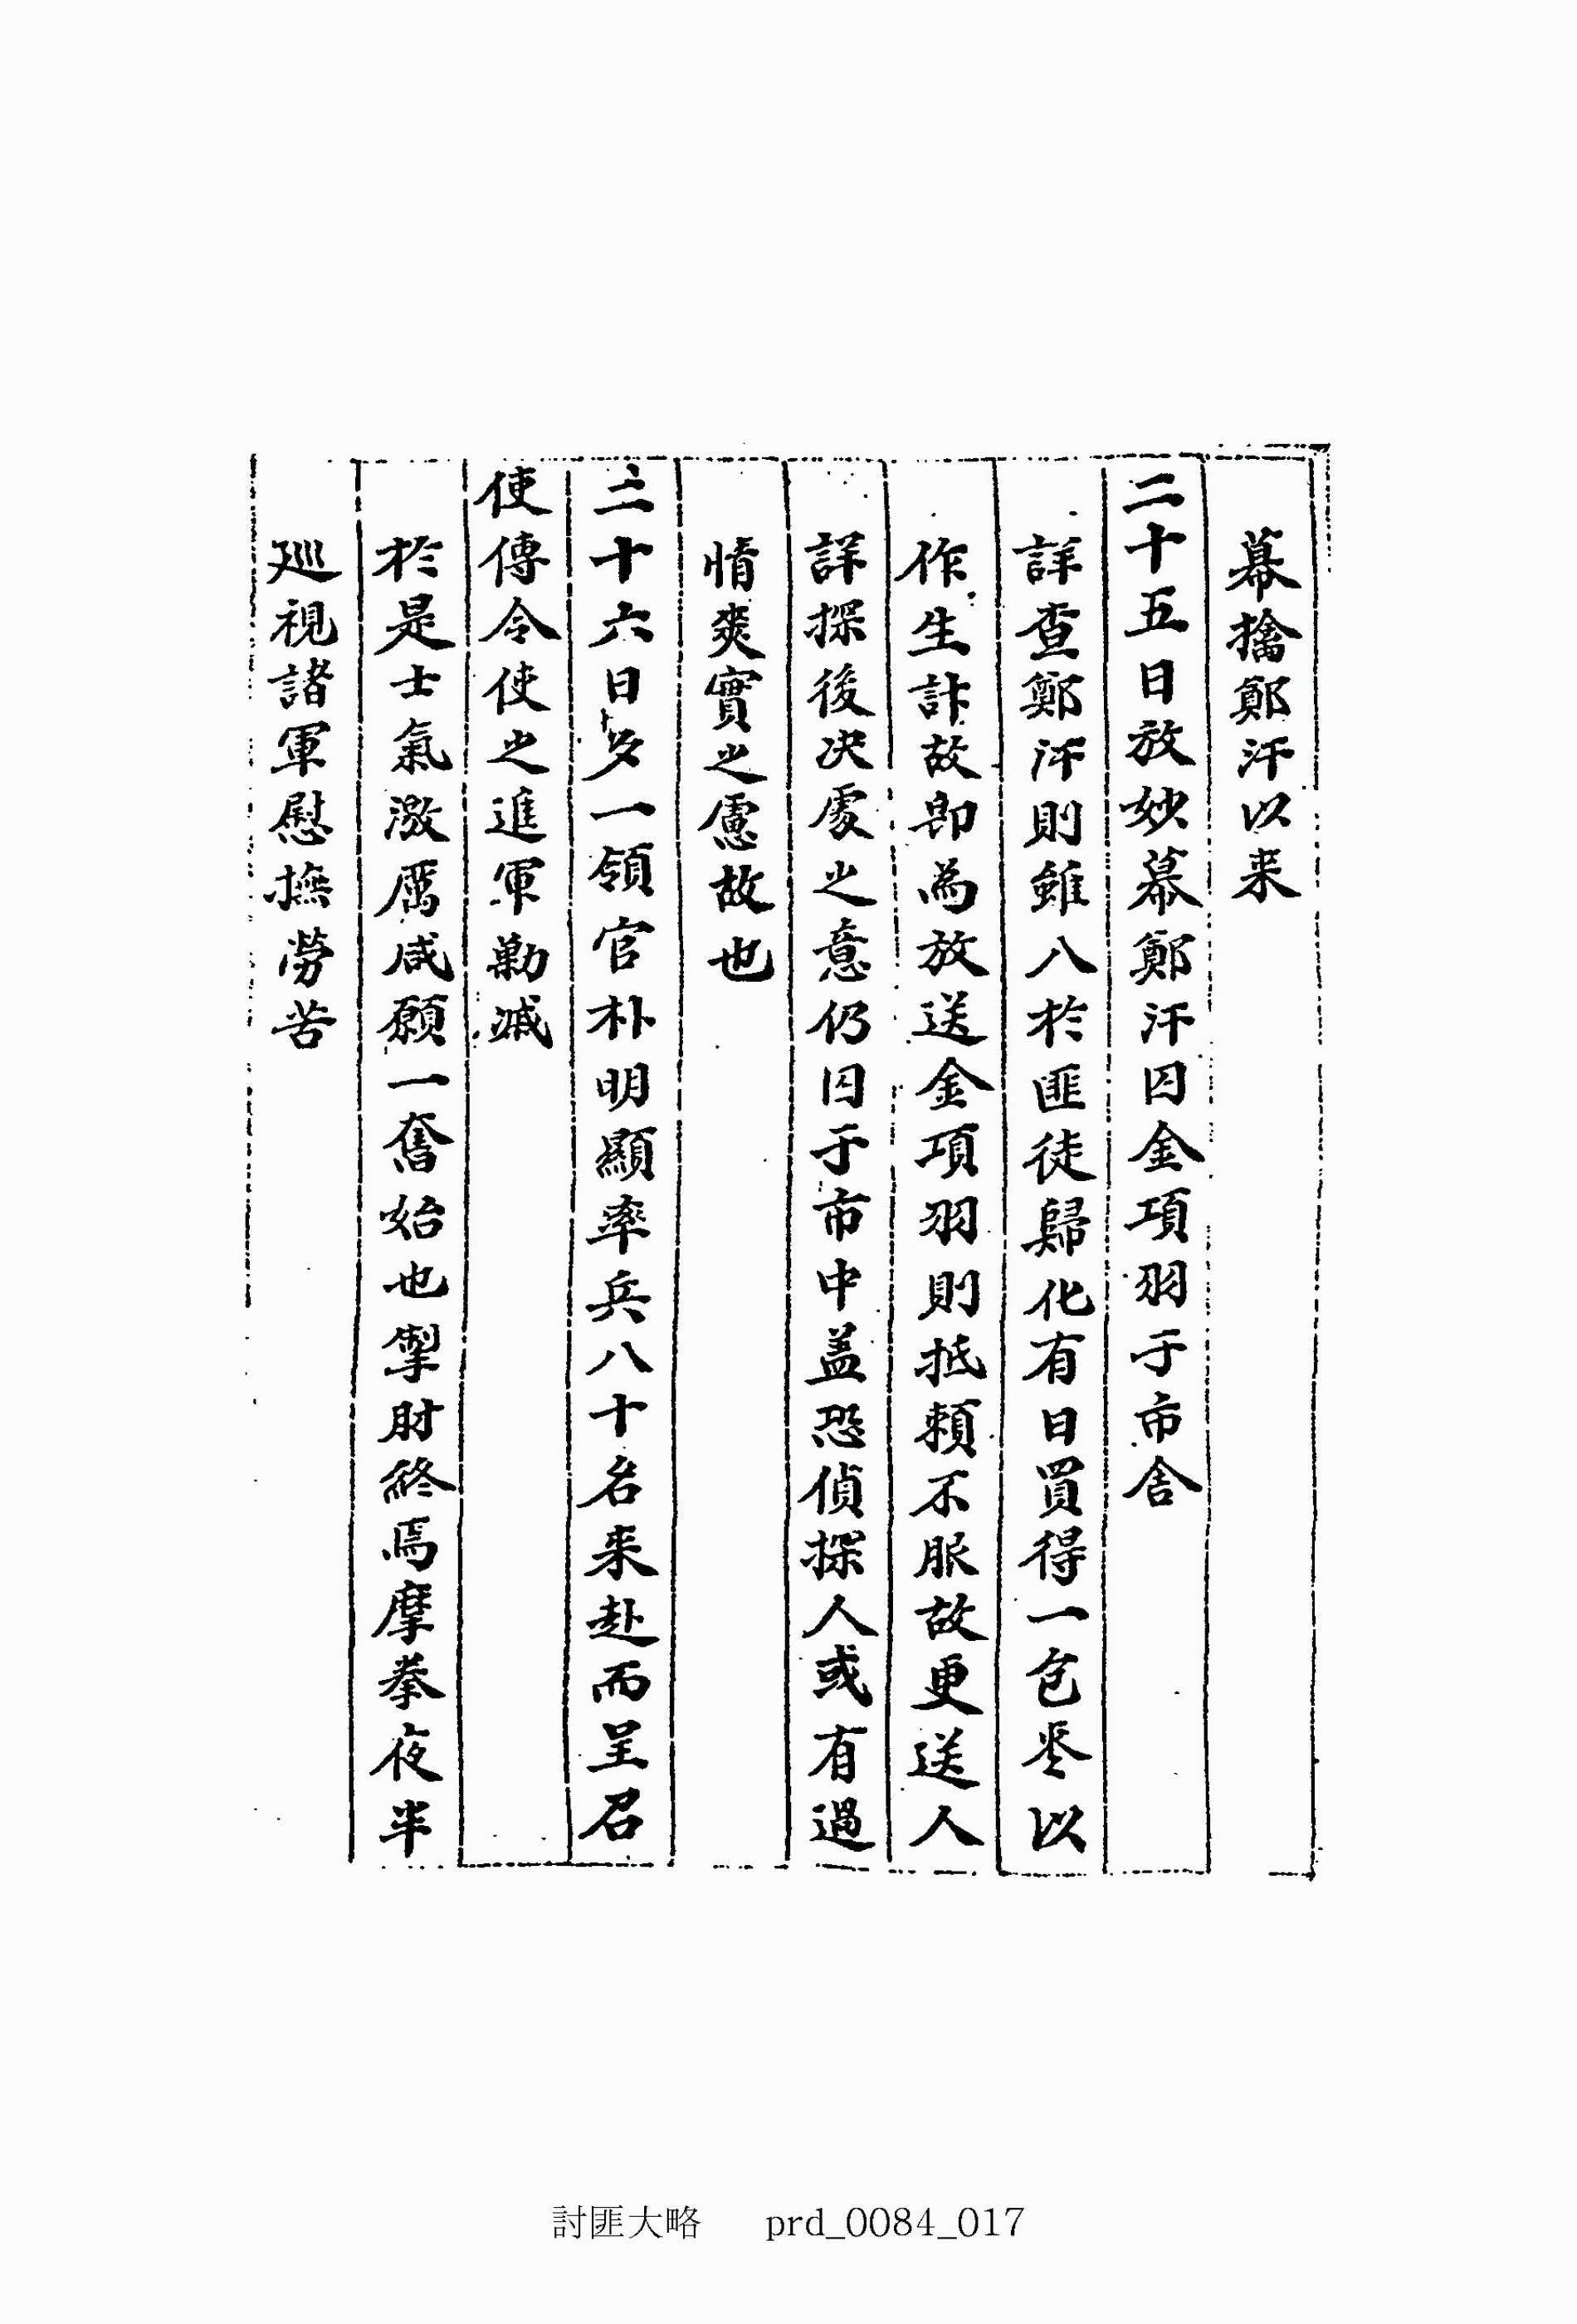 幕擒鄭汗以来
二十五日放妙幕鄭汗囚金項羽于市舍
詳查鄭汗則雖入於匪徒歸化有日買得一包烟以
作生計故即為放送金項羽則抵賴不服故更送人
詳探後決處之意仍囚于市中盖恐偵探人或有過
情爽實之慮故也
二十六日夕一領官朴明顯率兵八十名来赴而呈召
使傳令使之進軍勦滅
於是士氣激厲咸願一奮始也掣肘終焉摩拳夜半
廵視諸軍慰撫勞苦
討匪大略 prd_0084_017